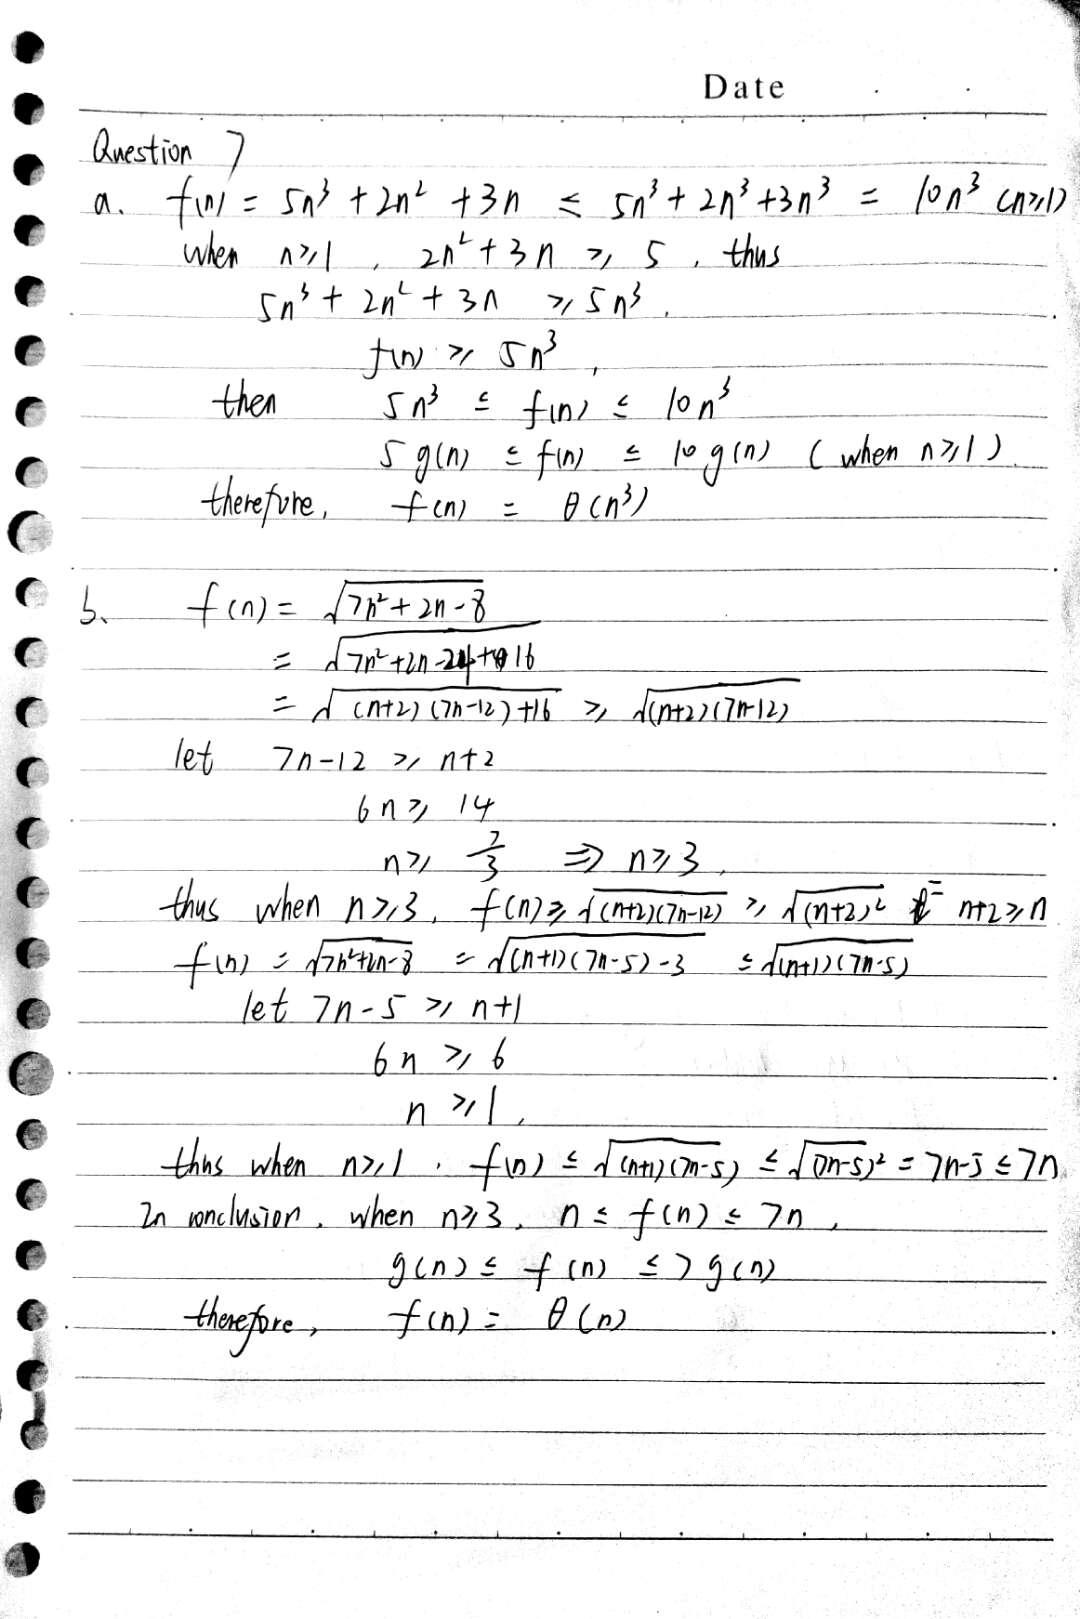 Date
Question 7
a. f(n) = 5n³ + 2n² + 3n ≤ 5n³ + 2n³ + 3n³ = 10n³ (n≥1)
when n≥1, 2n² + 3n ≥ 5, thus
5n³ + 2n² + 3n ≥ 5n³.
f(n) ≥ 5n³,
then 5n³ ≤ f(n) ≤ 10n³
5g(n) ≤ f(n) ≤ 10g(n) (when n≥1).
therefore, f(n) = θ(n³)
b. f(n) = √(7n²+2n-8)
= √(7n²+2n-24+16)
= √((n+2)(7n-12)+16) ≥ √((n+2)(7n-12))
let 7n-12 ≥ n+2
6n ≥ 14
n ≥ 7/3 ⇒ n≥3.
thus when n≥3, f(n) ≥ √((n+2)(7n-12)) ≥ √((n+2)²) = n+2 ≥ n
f(n) = √(7n²+2n-8) = √((n+1)(7n-5)-3) ≤ √((n+1)(7n-5))
let 7n-5 ≥ n+1
6n ≥ 6
n ≥ 1,
thus when n≥1, f(n) ≤ √((n+1)(7n-5)) ≤ √((7n-5)²) = 7n-5 ≤ 7n
In conclusion, when n≥3, n ≤ f(n) ≤ 7n,
g(n) ≤ f(n) ≤ 7g(n)
therefore, f(n) = θ(n)